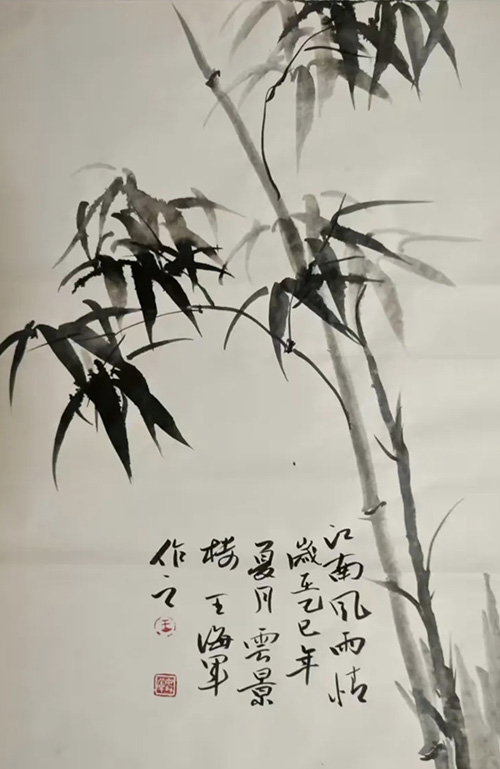 江南风雨情
岁在乙巳年
夏月雲景
楼王海军
作之